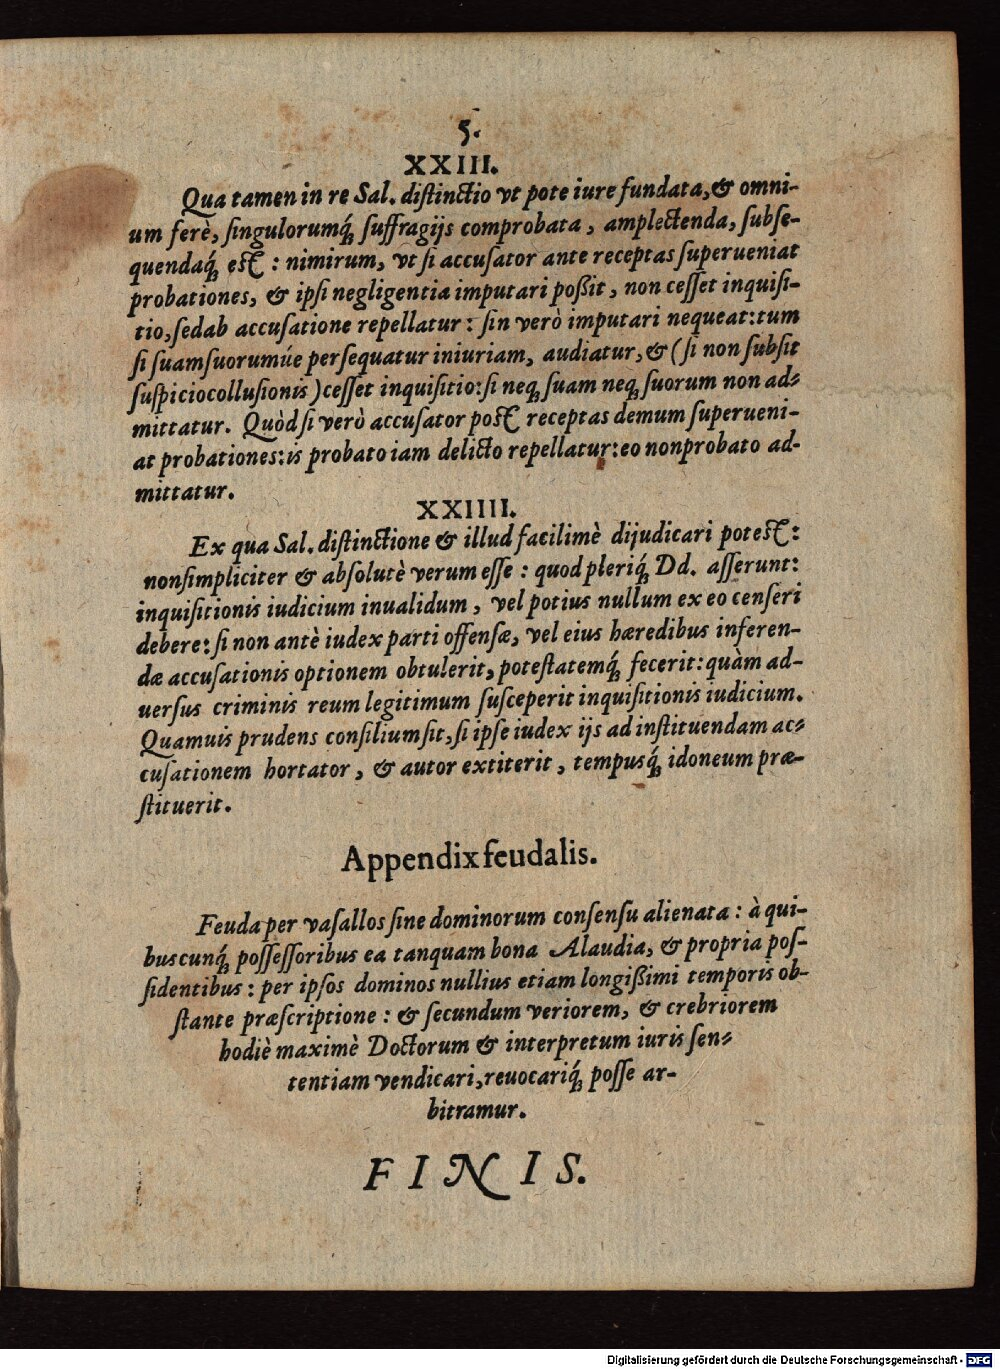 5.
XXIII.
Qua tamen in re Sal. distinctio vt pote iure fundata, & omni-
um ferè, singulorumq́; suffragijs comprobata, amplectenda, subse-
quendaq́; est: nimirum, vt si accusator ante receptas superueniat
probationes, & ipsi negligentia imputari poßit, non cesset inquisi-
tio, sed ab accusatione repellatur: sin verò imputari nequeat: tum
si suam suorumúe persequatur iniuriam, audiatur, & (si non subsit
suspicio collusionis) cesset inquisitio: si neq; suam neq; suorum non ad-
mittatur. Quòd si verò accusator post receptas demum superueni-
at probationes: is probato iam delicto repellatur: eo non probato ad-
mittatur.
XXIIII.
Ex qua Sal. distinctione & illud facilimè dijudicari potest:
non simpliciter & absolutè verum esse: quod pleriq́; Dd. asserunt:
inquisitionis iudicium inualidum, vel potius nullum ex eo censeri
debere: si non antè iudex parti offensæ, vel eius hæredibus inferen-
dæ accusationis optionem obtulerit, potestatemq́; fecerit: quàm ad-
uersus criminis reum legitimum susceperit inquisitionis iudicium.
Quamuis prudens consilium sit, si ipse iudex ijs ad instituendam ac-
cusationem hortator, & autor extiterit, tempusq́; idoneum præ-
stituerit.
Appendix feudalis.
Feuda per vasallos sine dominorum consensu alienata: à qui-
buscunq́; possessoribus ea tanquam bona Alaudia, & propria pos-
sidentibus: per ipsos dominos nullius etiam longißimi temporis ob-
stante præscriptione: & secundum veriorem, & crebriorem
hodiè maximè Doctorum & interpretum iuris sen-
tentiam vendicari, reuocariq́; posse ar-
bitramur.
FINIS.
Digitalisierung gefördert durch die Deutsche Forschungsgemeinschaft - DFG